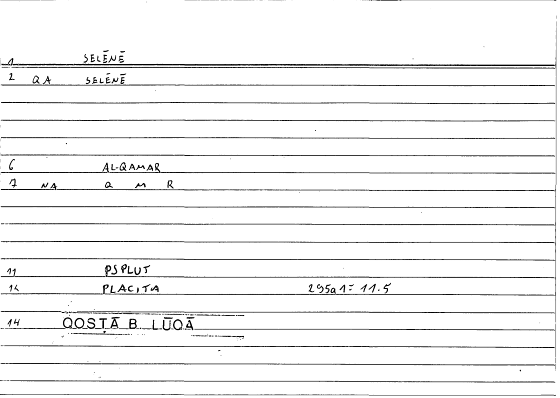 1 SELĒNĒ
2 QA SELĒNĒ
6 AL-QAMAR
7 NA Q M R
11 PSPLUT
12 PLACITA 295a1= 11.5
14 QOSṬĀ B. LŪQĀ